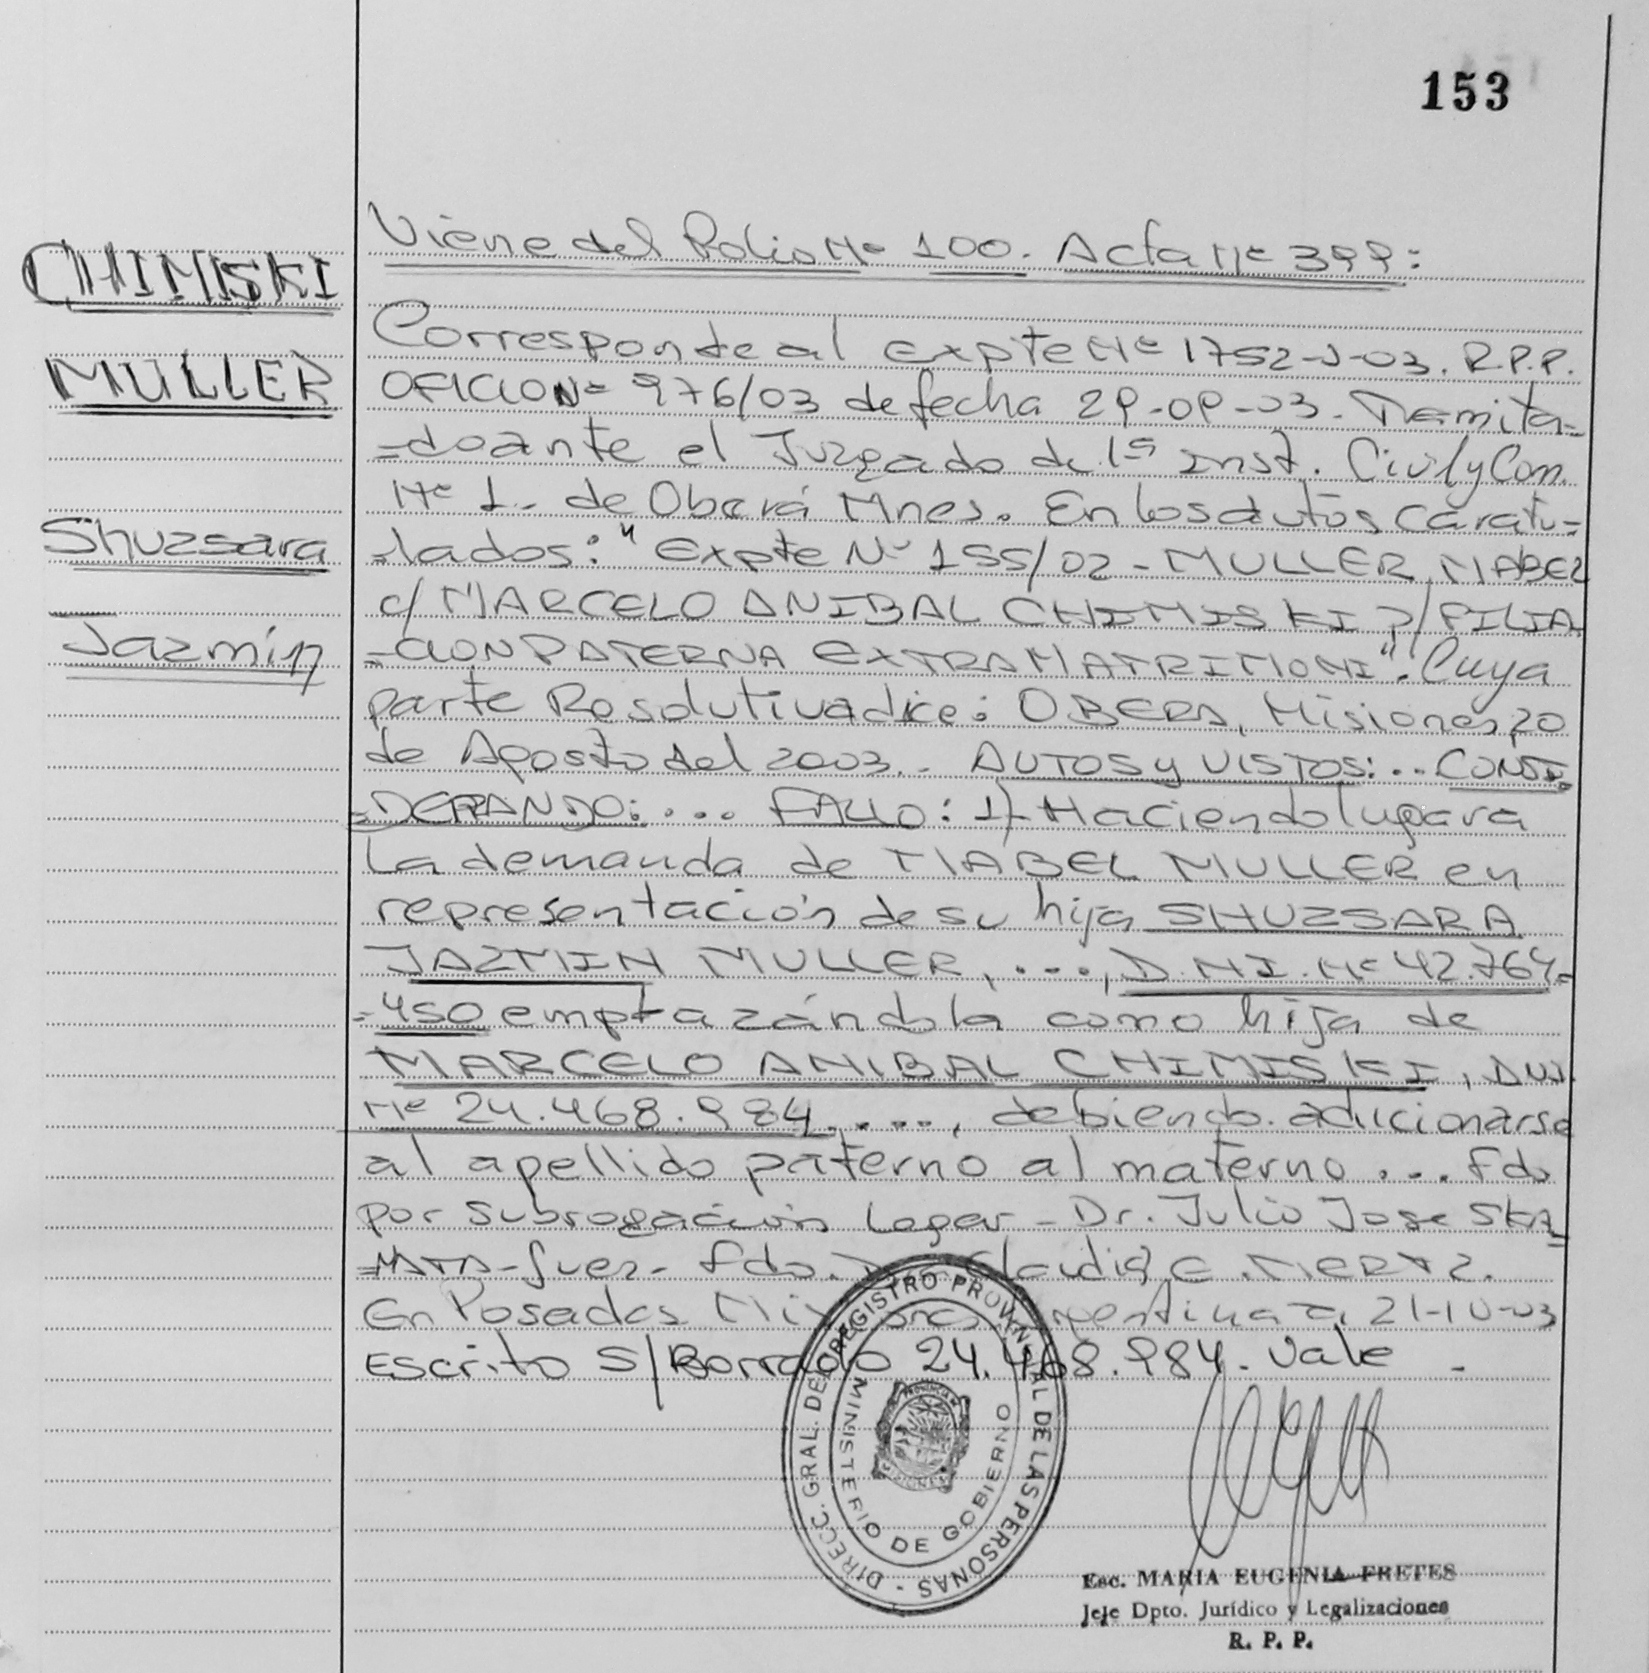 153
CHIMISKI
MULLER
Shuzsara
Jazmín
Viene del Folio Nº 100. Acta Nº 399:
Corresponde al expte Nº 1752-J-03. R.P.P.
OFICIO Nº 976/03 de fecha 29-09-03. Tramita-
-do ante el Juzgado de 1ª Inst. Civil y Com.
Nº 1.- de Oberá Mnes. En los autos caratu-
-lados: "Expte Nº 155/02 - MULLER, MABEL
c/ MARCELO ANIBAL CHIMISKI S/ FILIA-
-CION PATERNA EXTRAMATRIMONI". Cuya
parte Resolutiva dice: OBERA, Misiones, 20
de Agosto del 2003.- AUTOS y VISTOS:.. CONSI-
-DERANDO:... FALLO: 1)- Haciendo lugar a
la demanda de MABEL MULLER en
representación de su hija SHUZSARA
JAZMIN MULLER, ..., D.N.I. Nº 42.764-
-450 emplazándola como hija de
MARCELO ANIBAL CHIMISKI, DNI.
Nº 24.468.984....., debiendo adicionarse
al apellido paterno al materno ... Fdo
por subrogación Legar - Dr. Julio Jose SKA-
-MATA - Juez- Fdo. Claudia C. MERTZ.
En Posadas Misiones Argentina a 21-10-03
Escrito S/Borrado 24.468.984. Vale -
DIRECC. GRAL. DEL REGISTRO PROVINCIAL DE LAS PERSONAS -
MINISTERIO DE GOBIERNO
PROVINCIA
MISIONES
Esc. MARIA EUGENIA FRETES
Jefe Dpto. Jurídico y Legalizaciones
R. P. P.